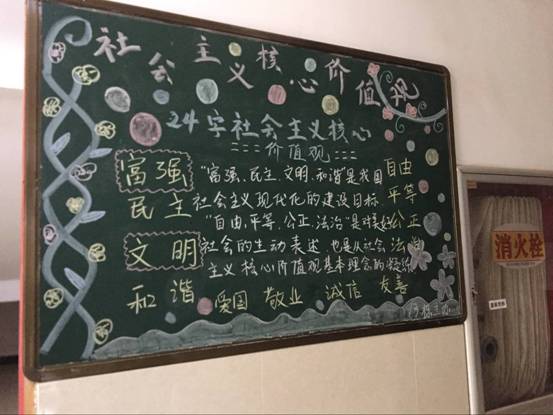 社会主义核心价值观
24字社会主义核心
价值观
富强
民主
文明
和谐
"富强、民主、文明、和谐"是我国
社会主义现代化的建设目标,
"自由、平等、公正、法治"是对美好
社会的生动表述,也是从社会
主义核心价值观基本理念的凝练
自由
平等
公正
法治
爱国 敬业 诚信 友善
消火栓